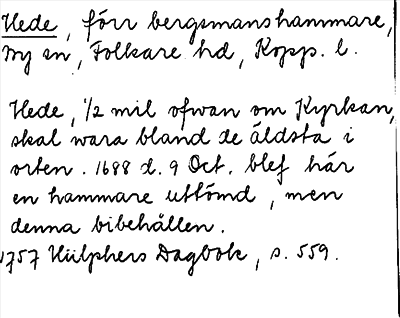 Hede, förr bergsmanshammare,
By sn, Folkare hd, Kopp. l.
Hede, 1/2 mil ofwan om Kyrkan,
skal wara bland de äldsta i
orten. 1688 d. 9 Oct. blef här
en hammare utdömd, men
denna bibehållen.
1757 Hülphers Dagbok, s. 559.